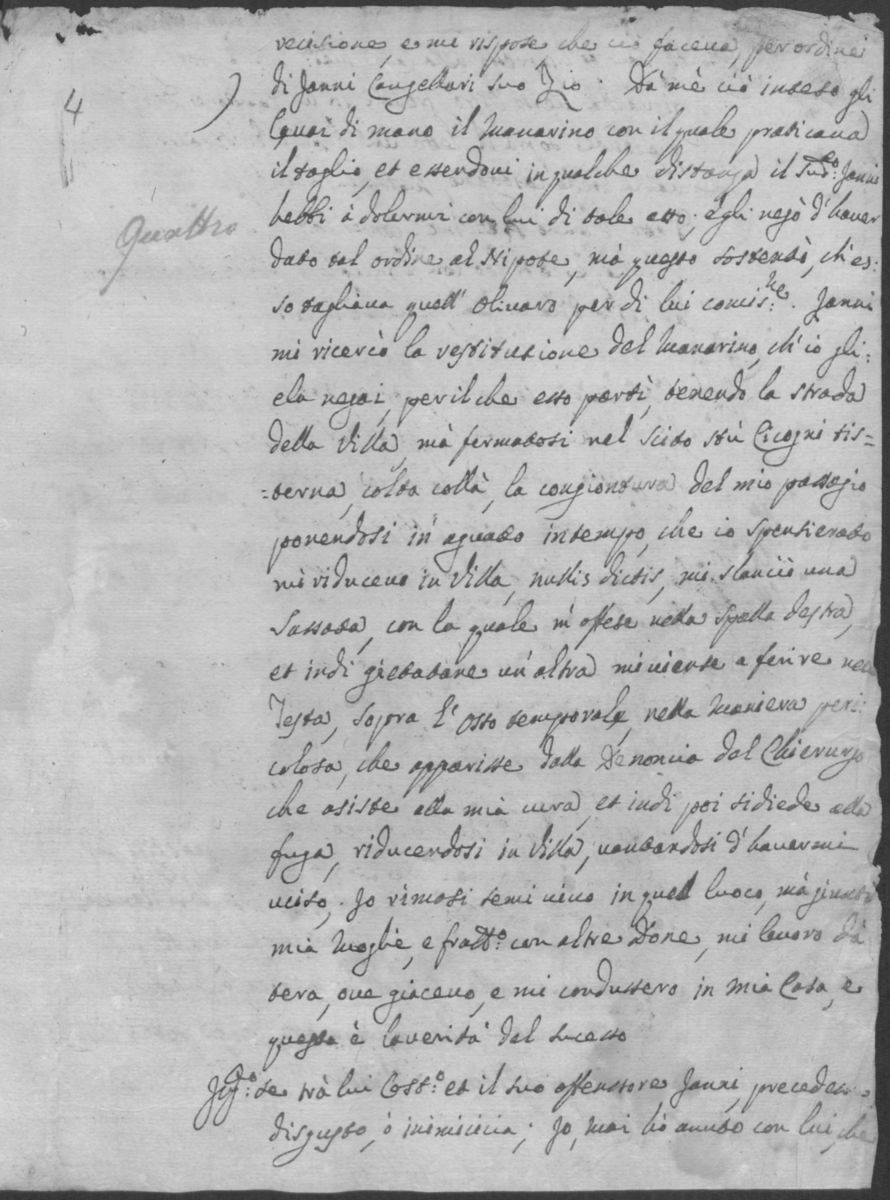 4
Quattro
recisione, e mi rispose che ciò faceva, per ordine
di Janni Cangellari suo Zio. Dà mè ciò inteso gli
levai di mano il Manarino con il quale praticava
il taglio, et essendovi in qualche distanza il sud.o Janni
hebbi à dolermi con lui di tale atto; egli negò d'haver
dato tal ordine al Nipote, mà questo sostentò, ch'es:
so tagliava quell' olivaro per di lui comis.ne. Janni
mi ricercò la restituzione del Manarino, ch'io gli:
ela negai, per il che esso partì, tenendo la strada
della Villa, mà fermatosi nel scito stù Cicogni Cis=
=terna, colta collà, la congiontura del mio passagio
ponendosi in aguato in tempo, che io spensierato
mi riducevo in Villa, nullis dictis, mi slanciò una
Sassata, con la quale m'offese nella spalla destra,
et indi giettatane un'altra mi viense a ferire nella
Testa, sopra l'osso temporale, nella maniera peri:
colosa, che apparisse dalla Denoncia del Chierurgo
che asiste alla mià cura, et indi poi si diede alla
fuga, riducendosi in Villa, vantandosi d'havermi
uciso. Io rimasi semivivo in quel luoco, mà giunti
mia Moglie, e frat.o con altre Done, mi levoro dà
tera, ove giacevo, e mi condussero in mia Casa, e
questa è la verità del sucesso
Int.o: se trà lui Cost.o et il suo offensore Janni, preceden
disgusto, ò inimicicia; Io, mai hò avuto con lui, che